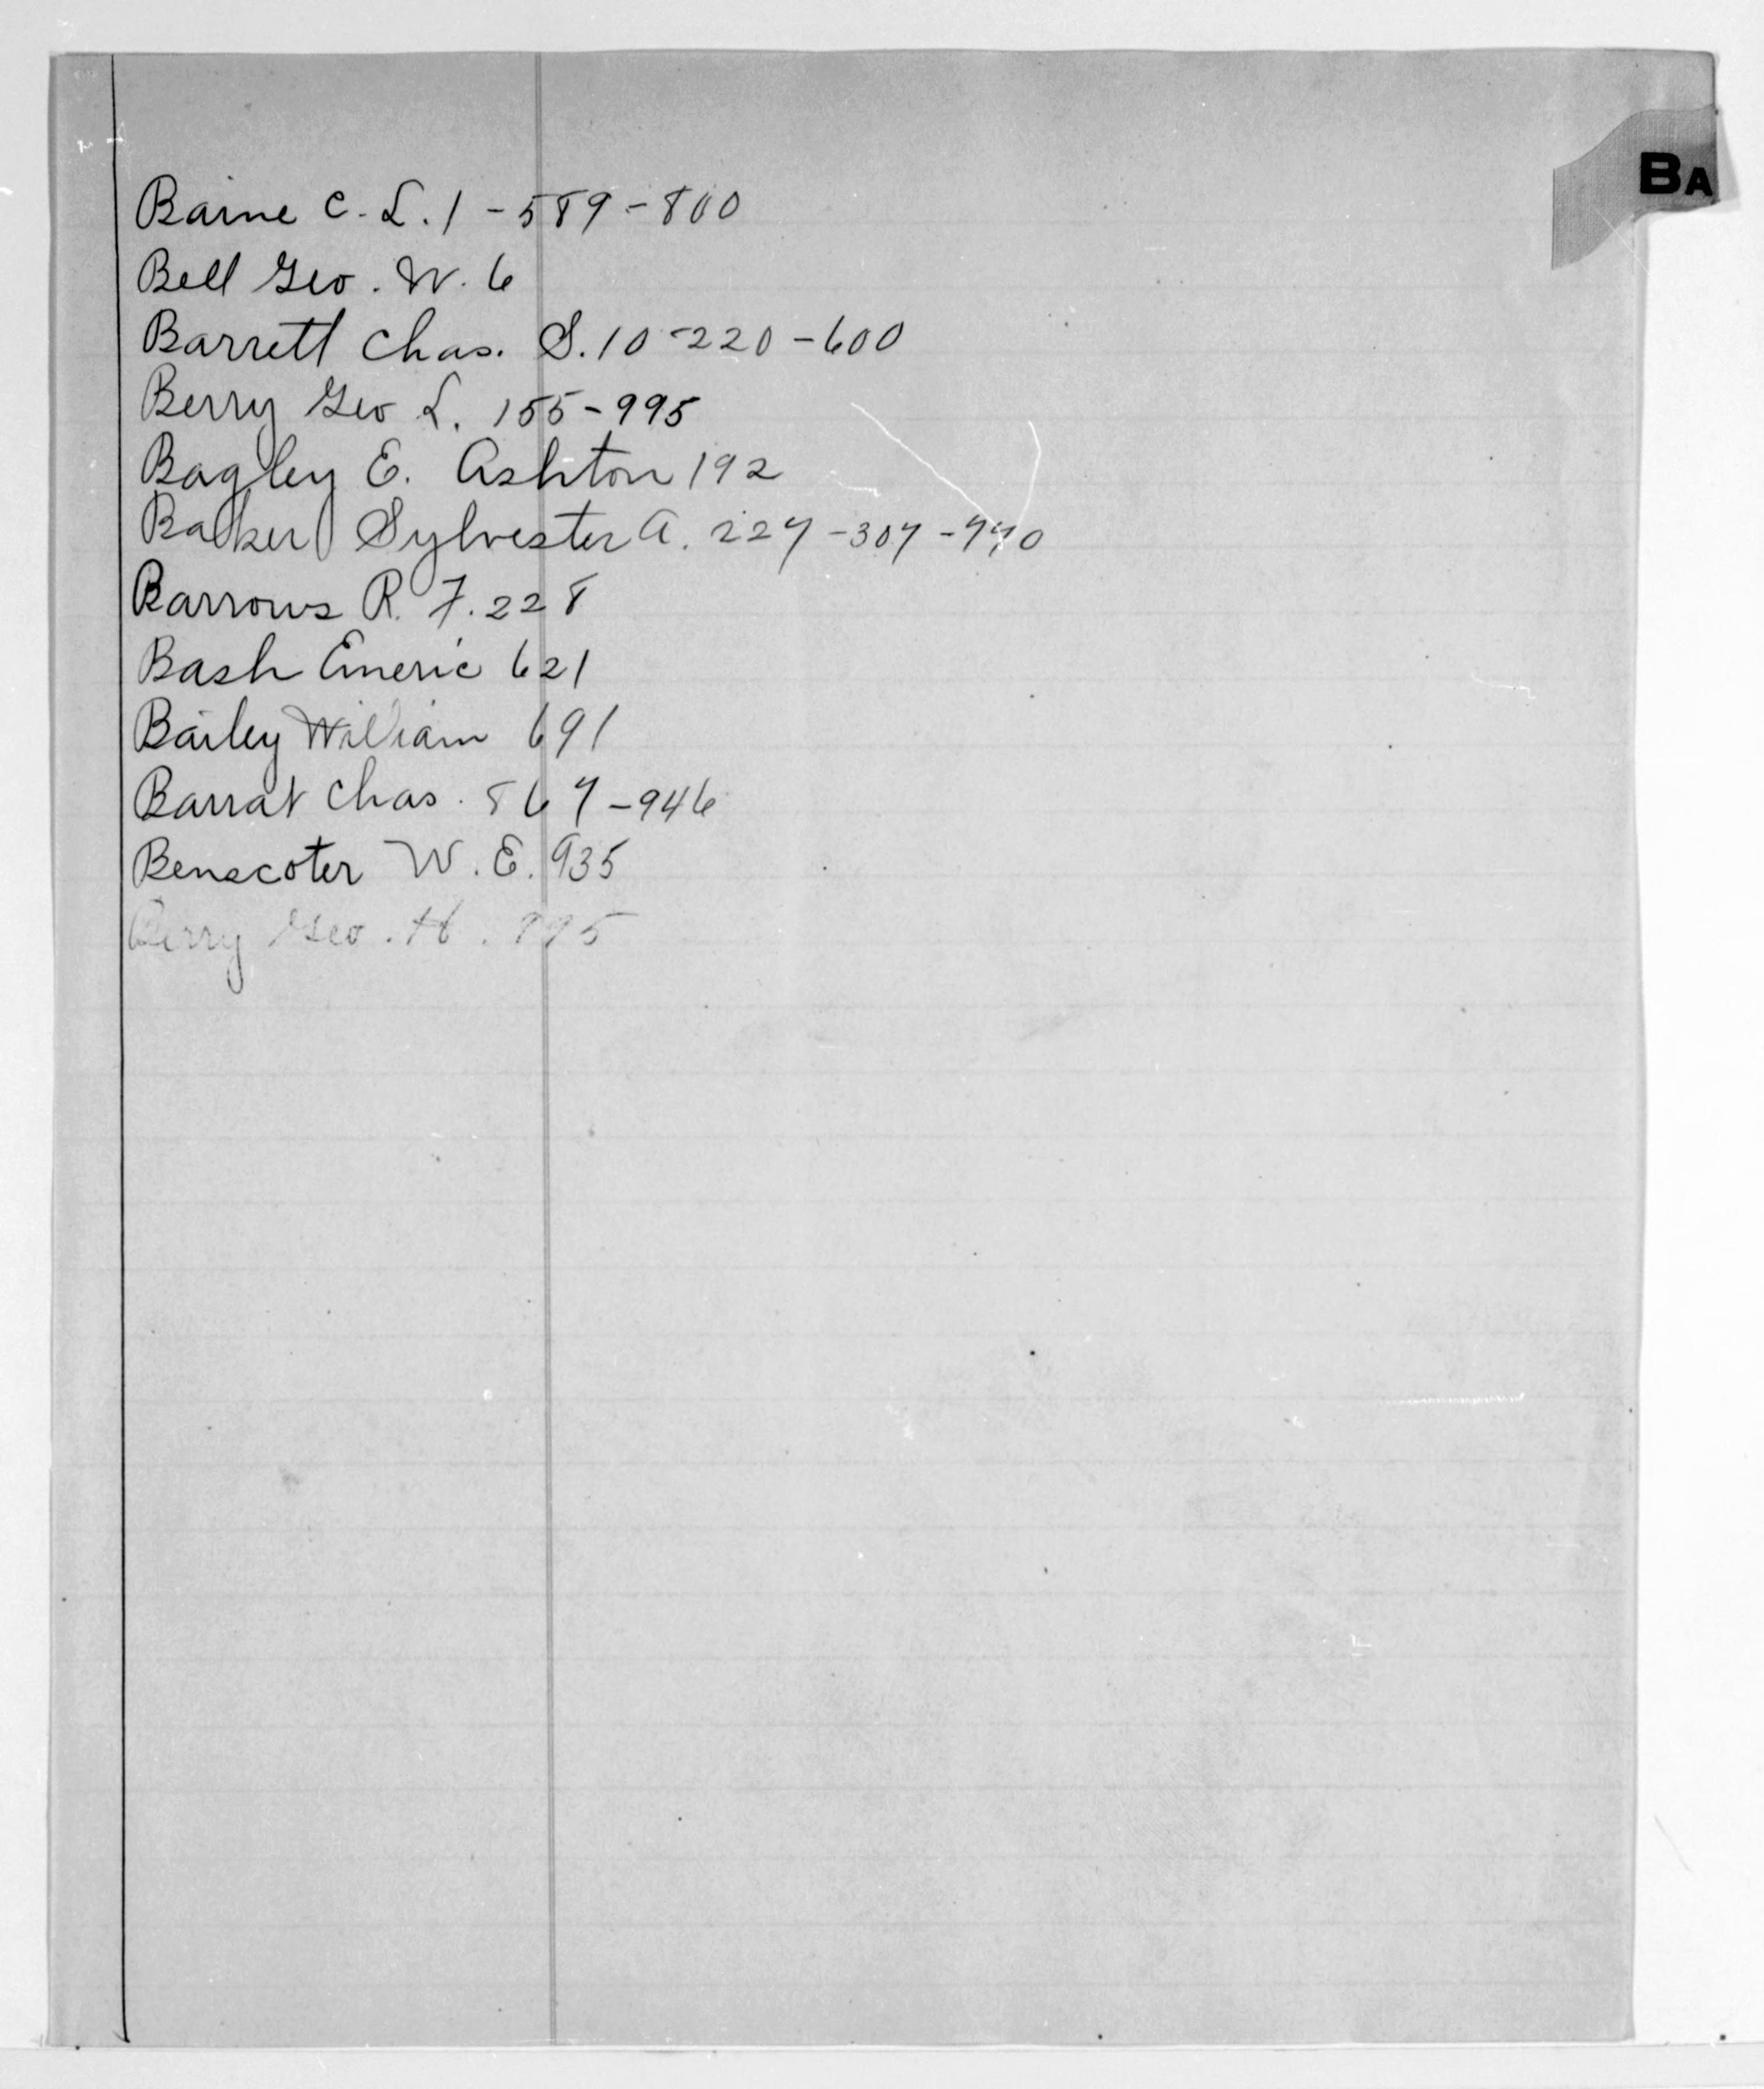 BA
Baine C. L. 1 - 589 - 800
Bell Geo. W. 6
Barrett Chas. S. 10 - 220 - 600
Berry Geo L. 155 - 995
Bagley E. Ashton 192
Baker Sylvester A. 227 - 307 - 770
Barrows R. F. 228
Bash Emeric 621
Bailey William 691
Barrat Chas. 867 - 946
Benscoter W. E. 935
Berry Geo. H. 995